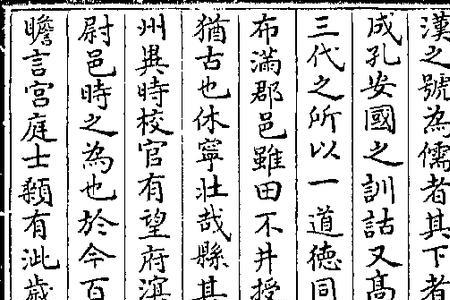 漢之號為儒者其下者
成孔安國之訓詁又高
三代之所以一道德同
布滿郡邑雖田不井授
猶古也休寧壯哉縣其
州異時校官有望府溟
尉邑時之為也於今百
瞻言宮庭士纇有泚歲